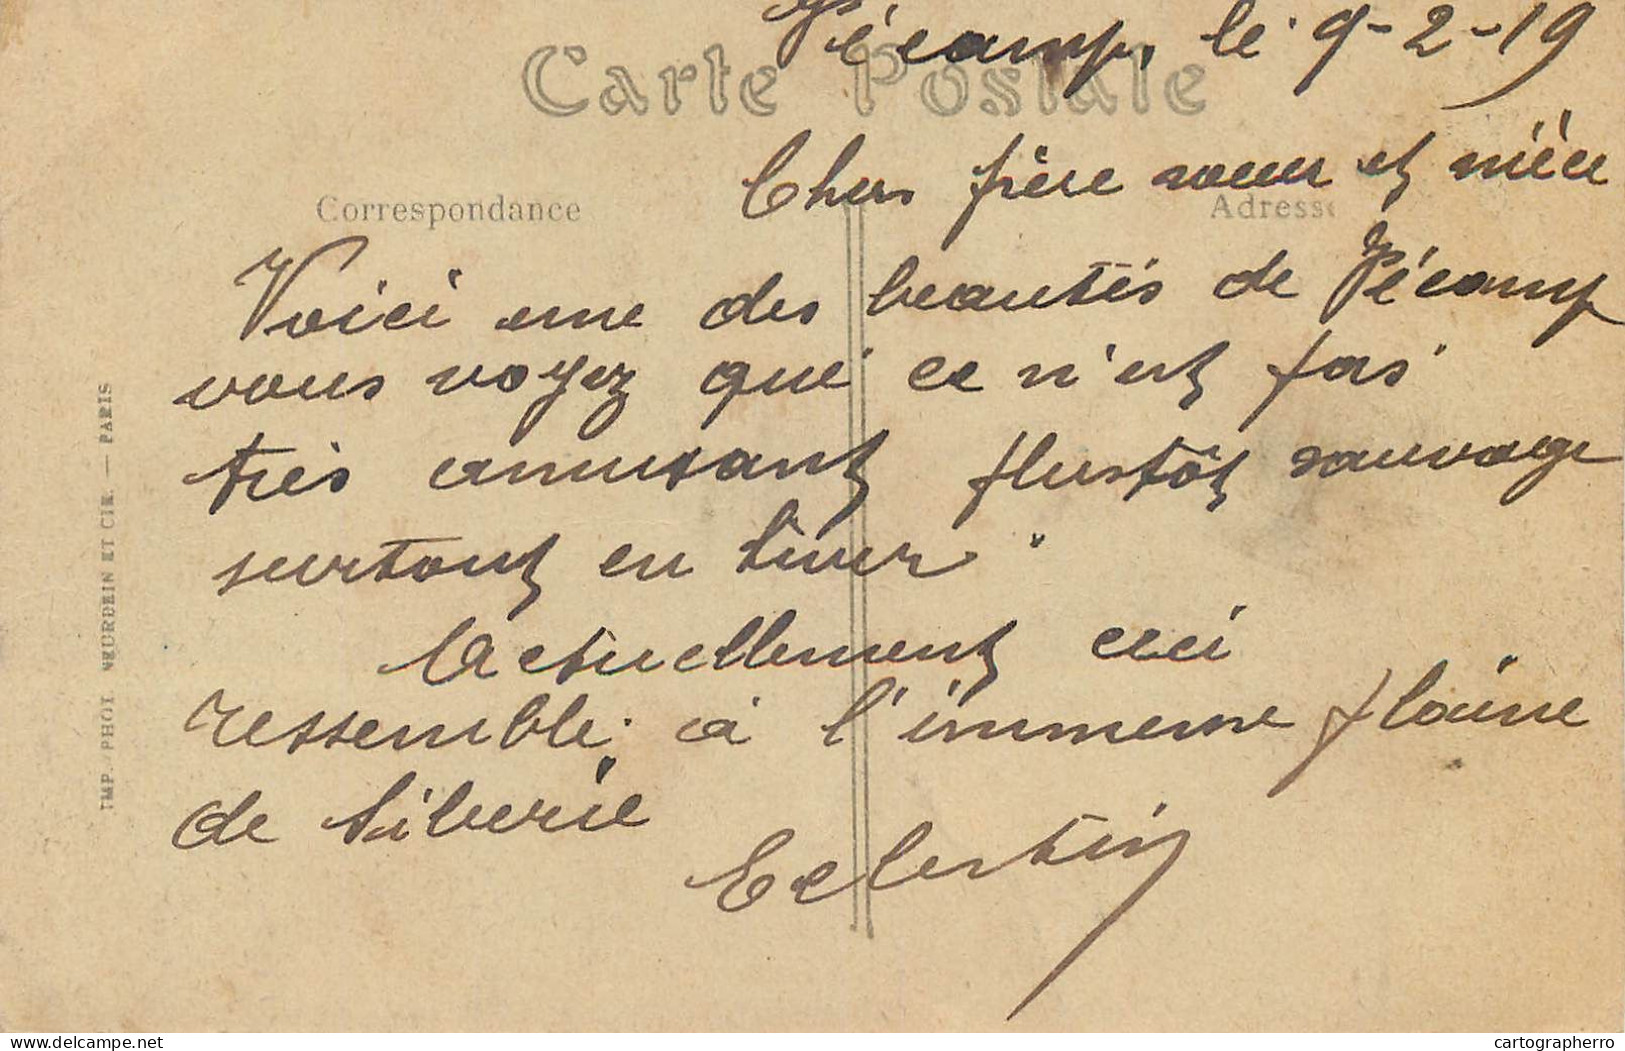 Fécamp, le 9-2-19
Carte Postale
Correspondance
Adresse
Chers frère sœur et nièce
Voici une des beautés de Fécamp
vous voyez que ce n'est pas
très amusant plustôt sauvage
surtout en hiver.
Actuellement ceci
ressemble à l'immense plaine
de Sibérie
Celestin
IMP. PHOT. NEURDEIN ET CIE. — PARIS
delcampe.net
cartographerro